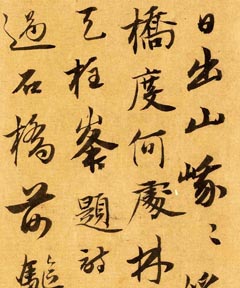 日出山峨〻
橋度何處林
天柱峯題詩
過石橋前驅